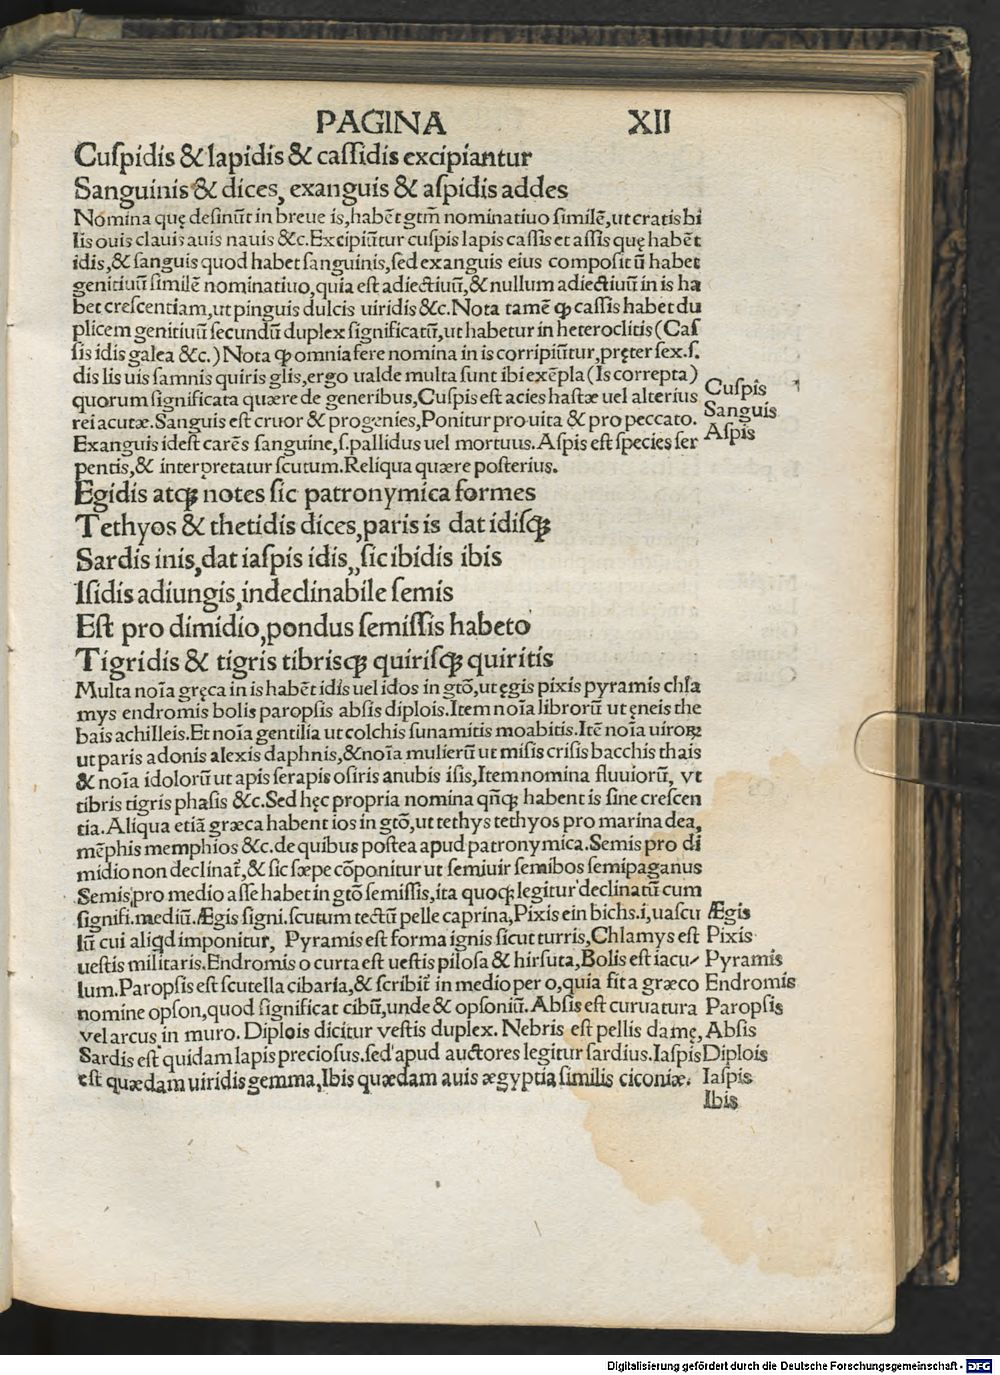 PAGINA XII
Cuſpidis & lapidis & caſſidis excipiantur
Sanguinis & dices, exanguis & aſpidis addes
Nomina quę deſinũt in breue is,habẽt gtm̃ nominatiuo ſimilẽ,ut cratis bi
lis ouis clauis auis nauis &c.Excipiũtur cuſpis lapis caſſis et aſſis quę habẽt
idis,& ſanguis quod habet ſanguinis,ſed exanguis eius compoſitũ habet
genitiuũ ſimilẽ nominatiuo,quia eſt adiectiuũ,& nullum adiectiuũ in is ha
bet creſcentiam,ut pinguis dulcis uiridis &c.Nota tamẽ ꝙ caſſis habet du
plicem genitiuũ ſecundũ duplex ſignificatũ,ut habetur in heteroclitis (Caſ
ſis idis galea &c.) Nota ꝙ omnia fere nomina in is corripiũtur,pręter ſex.ſ.
dis lis uis ſamnis quiris glis,ergo ualde multa ſunt ibi exẽpla (Is correpta)
quorum ſignificata quære de generibus,Cuſpis eſt acies haſtæ uel alterius
rei acutæ.Sanguis eſt cruor & progenies,Ponitur pro uita & pro peccato.
Exanguis ideſt carẽs ſanguine,ſ.pallidus uel mortuus.Aſpis eſt ſpecies ſer
pentis,& interpretatur ſcutum.Reliqua quære poſterius.
Cuſpis
Sanguis
Aſpis
Egidis atqꝫ notes ſic patronymica formes
Tethyos & thetidis dices,paris is dat idiſqꝫ
Sardis inis,dat iaſpis idis,,ſic ibidis ibis
Iſidis adiungis,indeclinabile ſemis
Eſt pro dimidio,pondus ſemiſſis habeto
Tigridis & tigris tibrisqꝫ quiriſqꝫ quiritis
Multa noĩa gręca in is habẽt idis uel idos in gtõ,ut ęgis pixis pyramis chla
mys endromis bolis paropſis abſis diplois.Item noĩa librorũ ut ęneis the
bais achilleis.Et noĩa gentilia ut colchis ſunamitis moabitis.Itẽ noĩa uiroꝝ
ut paris adonis alexis daphnis,& noĩa mulierũ ut miſis criſis bacchis thais
& noĩa idolorũ ut apis ſerapis oſiris anubis iſis,Item nomina fluuiorũ, vt
tibris tigris phaſis &c.Sed hęc propria nomina qñqꝫ habent is ſine creſcen
tia.Aliqua etiã græca habent ios in gtõ,ut tethys tethyos pro marina dea,
mẽphis memphios &c.de quibus poſtea apud patronymica.Semis pro di
midio non declinat̃,& ſic ſæpe cõponitur ut ſemiuir ſemibos ſemipaganus
Semis pro medio aſſe habet in gtõ ſemiſſis,ita quoqꝫ legitur declinatũ cum
ſignifi.mediũ.Ægis ſigni.ſcutum tectũ pelle caprina,Pixis ein bichs.i,uaſcu
lũ cui aliqd imponitur, Pyramis eſt forma ignis ſicut turris,Chlamys eſt
ueſtis militaris.Endromis o curta eſt ueſtis piloſa & hirſuta,Bolis eſt iacu⸗
lum.Paropſis eſt ſcutella cibaria,& ſcribit̃ in medio per o,quia fit a græco
nomine opſon,quod ſignificat cibũ,unde & opſoniũ.Abſis eſt curuatura
vel arcus in muro. Diplois dicitur veſtis duplex. Nebris eſt pellis damę,
Sardis eſt quidam lapis precioſus.ſed apud auctores legitur ſardius.Iaſpis
eſt quædam uiridis gemma,Ibis quædam auis ægyptia ſimilis ciconiæ.
Ægis
Pixis
Pyramis
Endromis
Paropſis
Abſis
Diplois
Iaſpis
Ibis
Digitalisierung gefördert durch die Deutsche Forschungsgemeinschaft - DFG